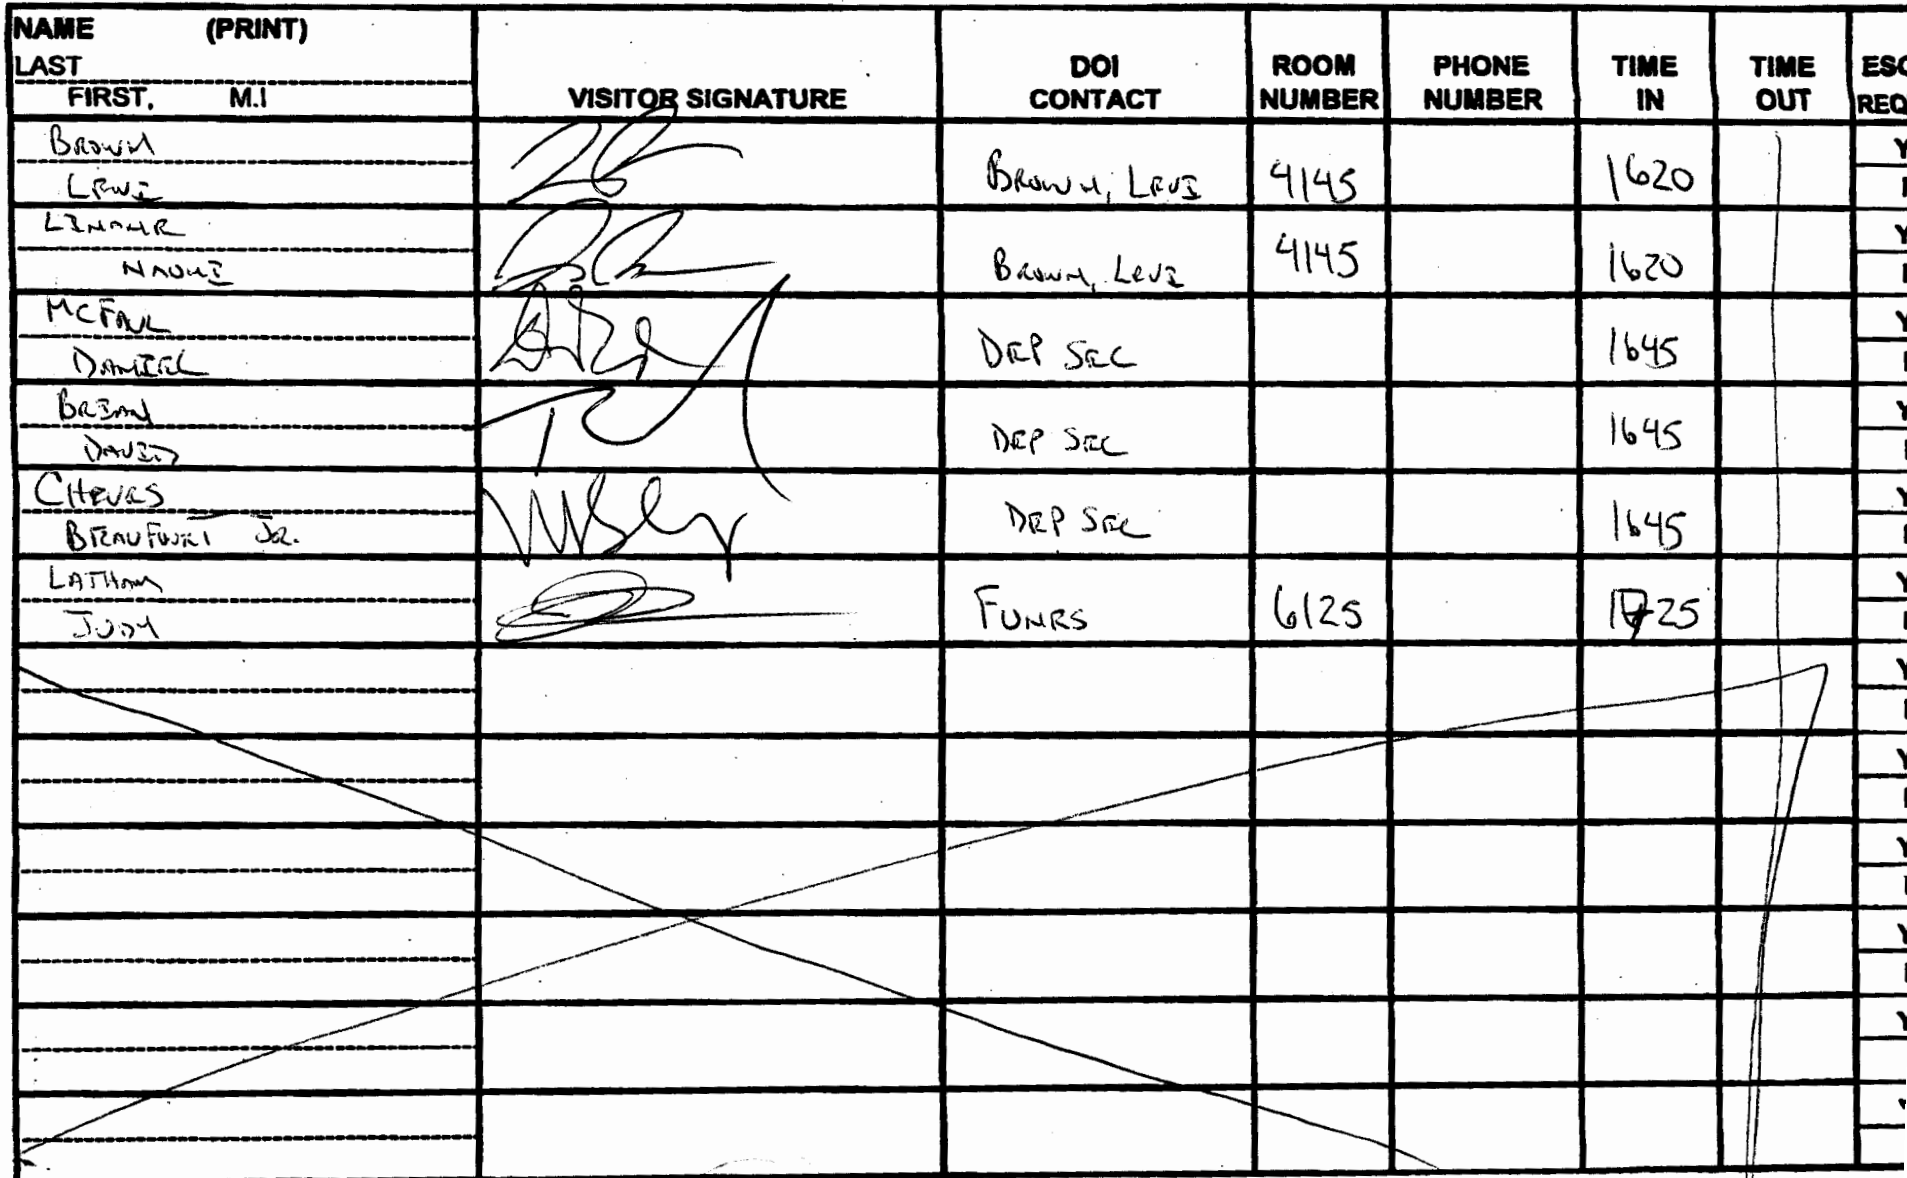 NAME (PRINT)
LAST
FIRST, M.I
VISITOR SIGNATURE
DOI CONTACT
ROOM NUMBER
PHONE NUMBER
TIME IN
TIME OUT
BROWN
LEVI
BROWN, LEVI 4145 1620
NAOMI
BROWN, LEVI 4145 1620
MCFAUL
DANIEL
DEP SEC 1645
BRIAN
DAVID
DEP SEC 1645
CHEVES
BEAUFORT JR.
DEP SEC 1645
LATHAM
JUDY
6125 1725